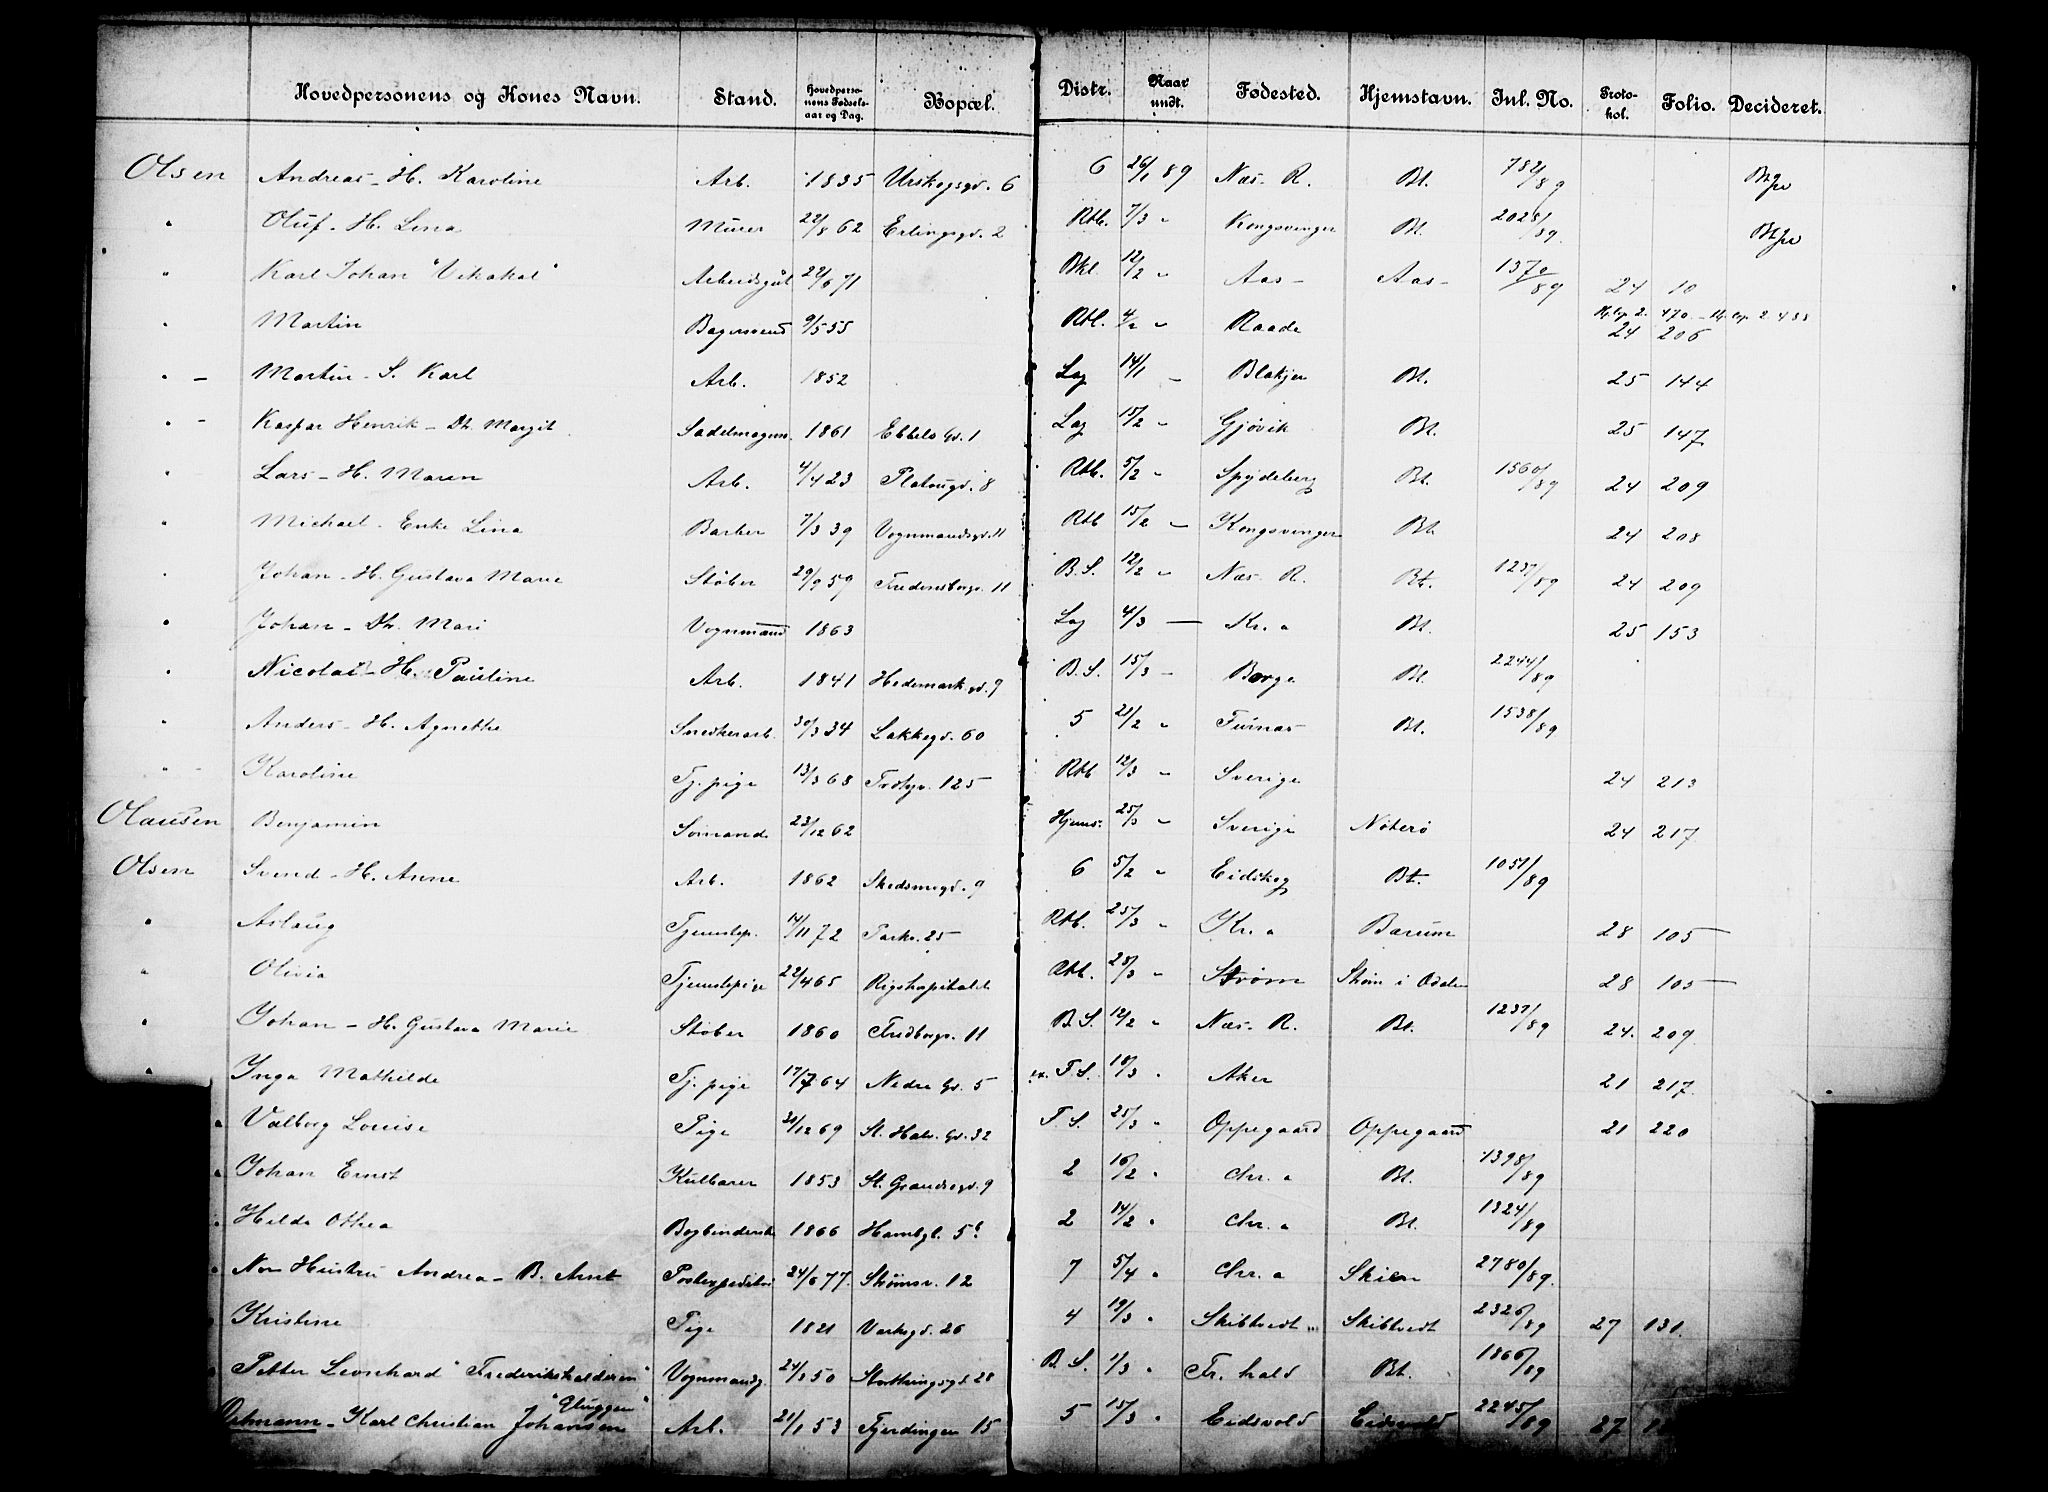 Hovedpersonens og Kones Navn. Stand. Hovedperso-nens Fødsels-aar og Dag. Bopæl. Distr. Naar undt. Fødested. Hjemstavn. Jnl. No. Proto-kol. Folio. Decideret.
Olsen Andreas - H. Karoline Arb. 1835 Urskogsgd. 6 6 26/1 89 Næs. R. Bt. 782/89
" Oluf - H. Lina Murer 22/8 62 Erlingsgd. 2 Rbl. 7/3 " Kongsvinger Bt. 2028/89
" Karl Johan "Vikakal" Arbeidsgut 22/6 71 Bkl. 12/2 " Aas - Aas - 1370/89 24 10
" Martin Bagersvend 9/5 55 Rbl. 4/2 " Raade 24 206
" - Martin - S. Karl Arb. 1852 Lag 14/1 - Blakjer Bt. 25 144
" - Kaspar Henrik - Dr. Margit Sadelmagers. 1861 Ebbels Gd. 1 Lag 15/2 " Gjøvik Bt. 25 147
" Lars - H. Maren Arb. 4/4 23 Platougd. 8 Rbl. 5/2 " Spydeberg Bt. 1560/89 24 209
" Michael - Enke Lina Barber 7/3 39 Vognmandsgd. 11 Rbl 15/2 - Kongsvinger Bt. 24 208
" Johan - H. Gustava Marie Støber 29/9 59 Fredensborgv. 11 B.S. 12/2 " Næs. R. Bt. 1237/89 24 209
" Johan - Dr. Mari Vognmand 1863 Lag 4/3 - Kr.a Bt. 25 153
" Nicolai - H. Pauline Arb. 1841 Hedemarksgd. 9 B.S. 15/3 - Borge Bt. 2244/89
" Anders - H. Agnethe Snedkerarb. 30/3 34 Lakkegd. 60 5 21/2 " Furnæs Bt. 1538/89
" - Karoline Tj. pige 13/3 68 125 Rbl 12/3 " Sverige 24 213
Olausen Benjamin Sømand 23/12 62 Hjems. 25/3 " Sverige Nøterø 24 217
Olsen Svend - H. Anne Arb. 1862 Skedsmogd. 9 6 5/2 " Eidskog Bt. 1051/89
" Aslaug Tjenestep. 14/11 72 Parkv. 25 Rbl. 25/3 " Kr.a Bærum 28 105
" Olivia Tjenestepige 22/4 65 Rigshospitalet Rbl. 28/3 " Strøm Strøm i Odalen 28 105
" Johan - H. Gustava Marie Støber 1860 Fredborgv. 11 B.S. 12/2 " Næs. R. Bt. 1237/89 24. 209
" Inga Mathilde Tj. pige 17/7 64 Nedre Gd. 5 T.S. 18/3 " Aker 21 217
" Valborg Louise Pige 31/12 69 St. Halv. Gd. 32 T.S. 25/3 " Oppegaard Oppegaard 21 220
" Johan Ernst Kulbærer 1853 St. Grændsegd. 9 2 16/2 " Chr.a Bt. 1398/89
" Helda Othea 1866 Hambgt. 5 2 14/2 " Chr.a Bt. 1324/89
" Hustru Andrea - B. Arnt 24/6 77. Strømsv. 12 7 5/4 " Chr.a Skien 2780/89.
" Kristine Pige 1821 Værksgd. 26 4 19/3 " Skibtvedt Skibtvedt 2326/89 27 131.
" Petter Leonhard "Frederikshalderen" Vognmandg. 24/3 50 Storthingsgd. 28 B.S. 1/3 " Fr. hald Bt. 1866/89
"Gluggen"
Ostmann - Karl Christian Johansen Arb. 21/1 53 Fjerdingen 15 5 15/3 " Eidsvold Eidsvold 2245/89 27